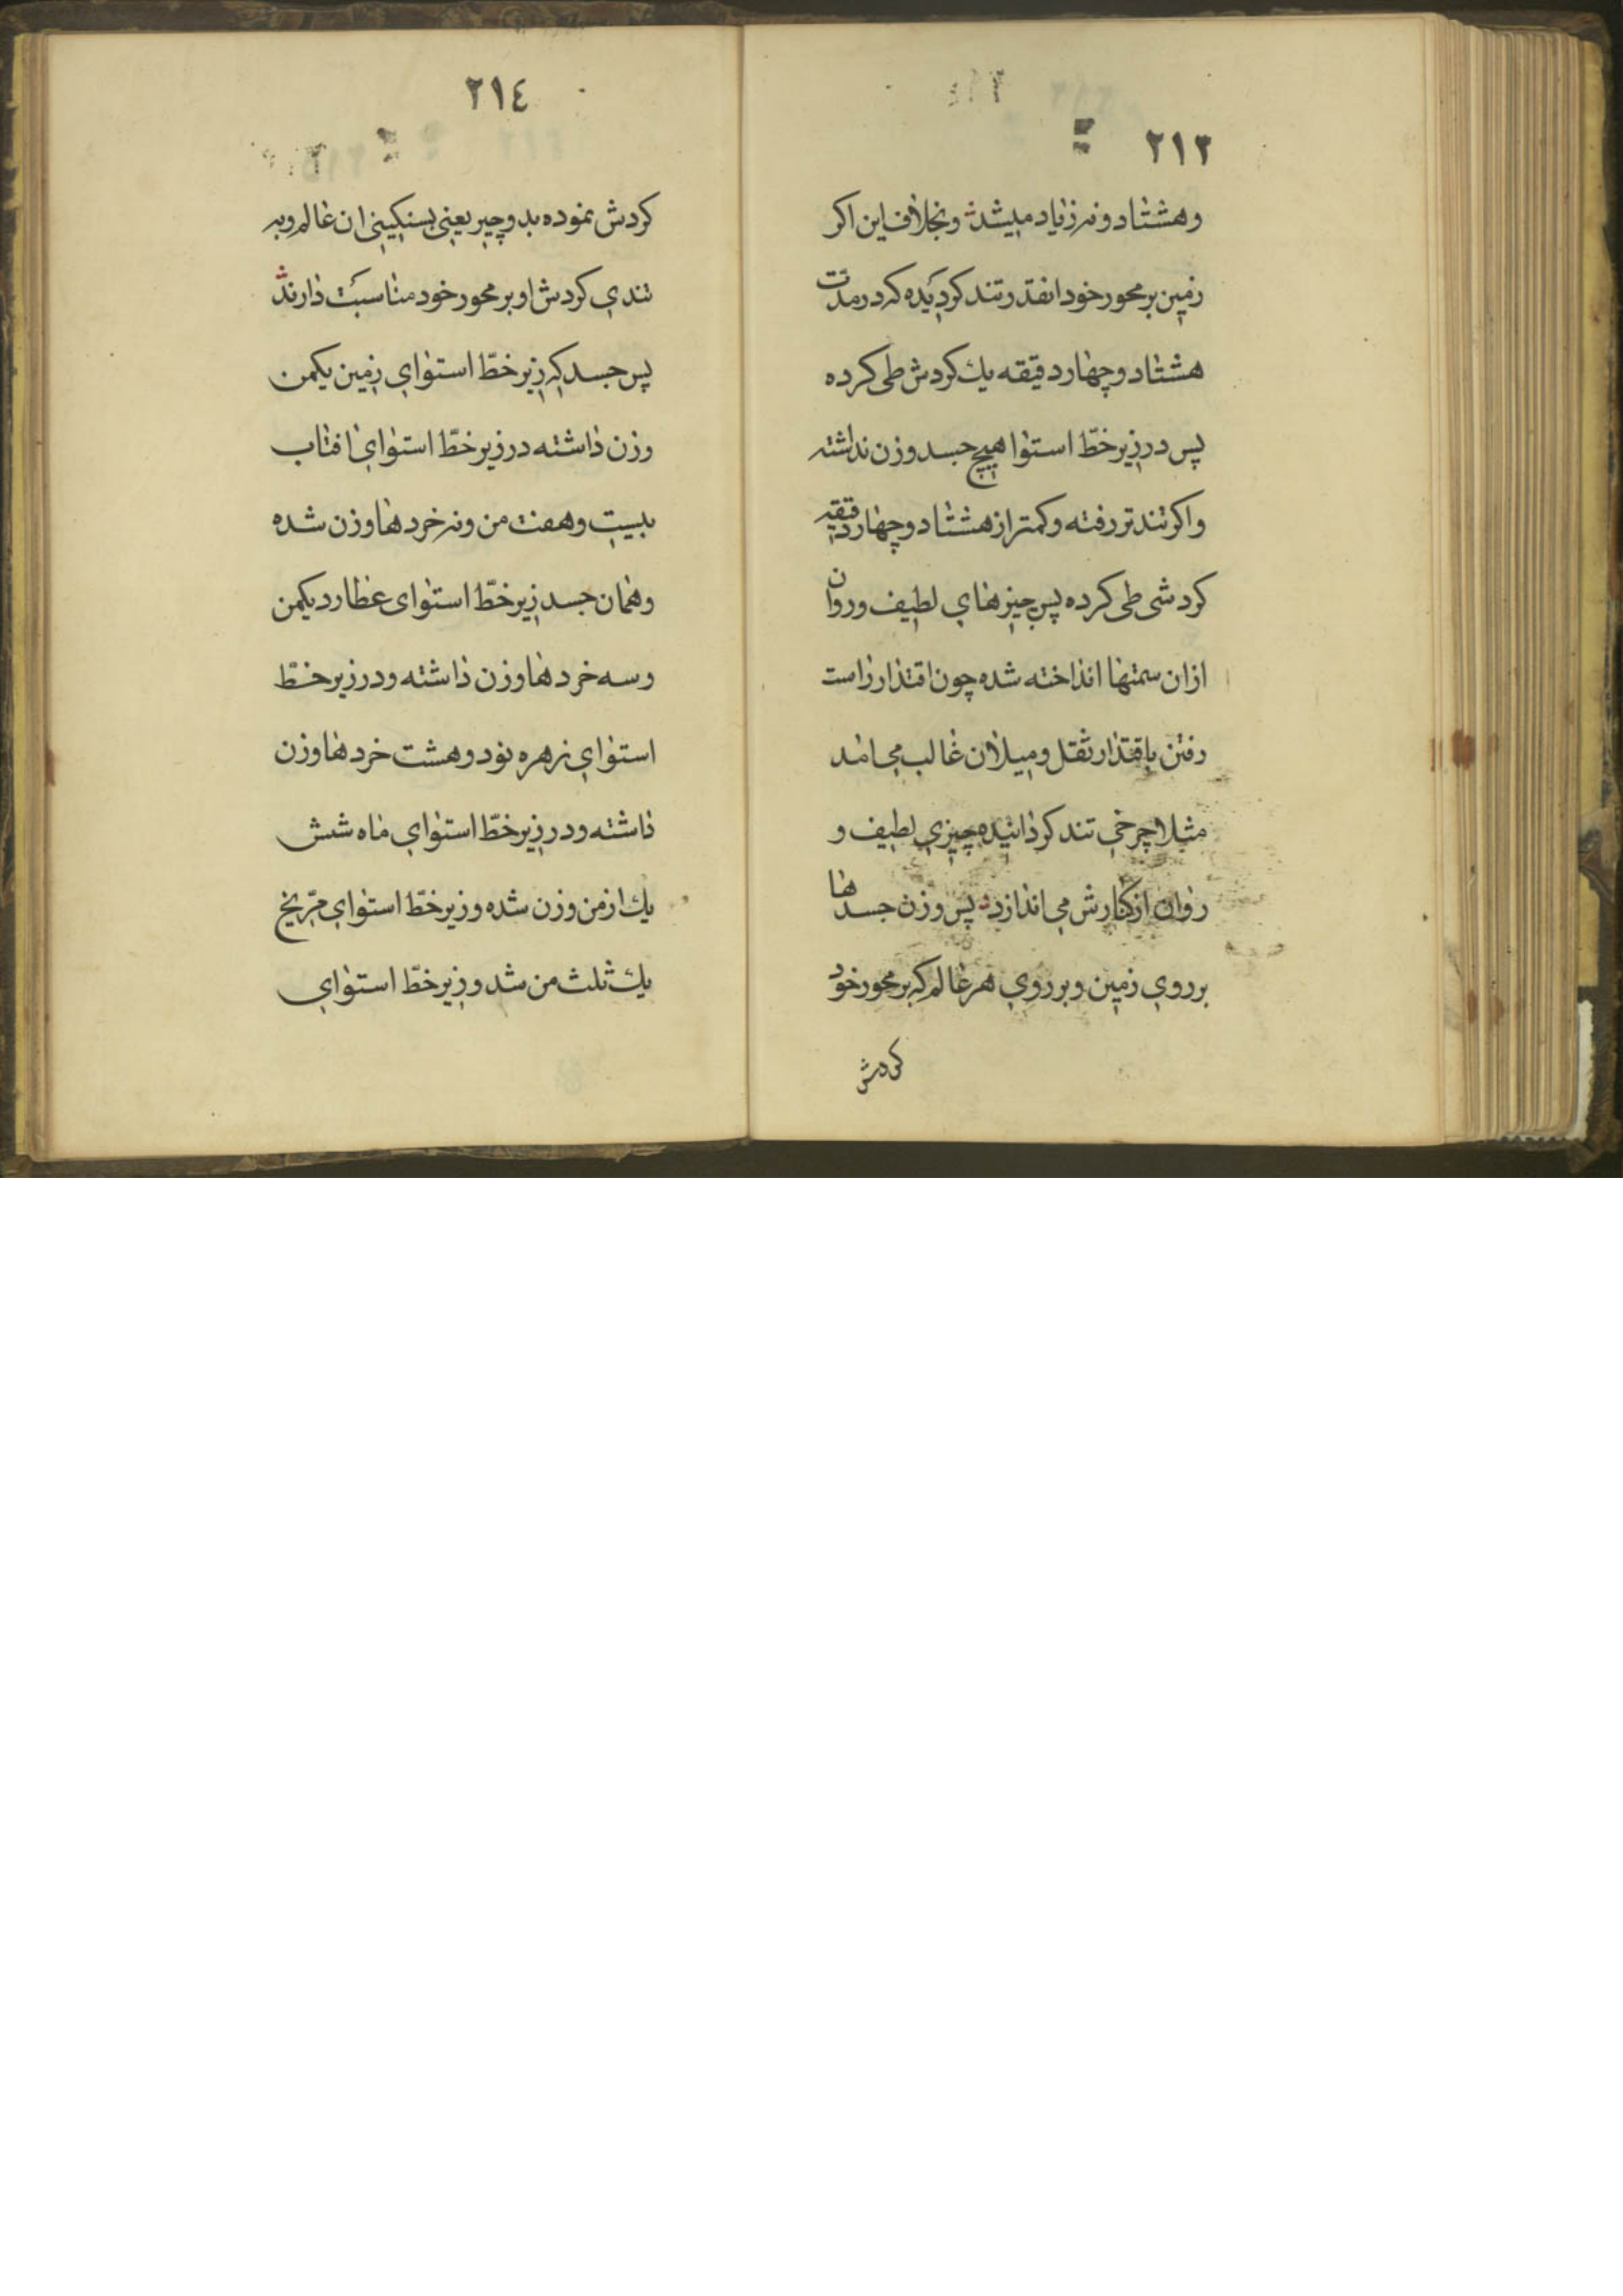 ٢١٣
وهشتاد ونه زیاد میشد ونجلاف این اکر
زمین بر محور خود انقدر تند کردیده که در مدت
هشتاد وچهار دقیقه یك کردش طی کرده
پس در زیر خطّ استوا هیچ جسد وزن نداشته
واکر تندتر رفته وکمتر از هشتاد وچهار دقیقه
کردشی طی کرده پس چیزهای لطیف وروان
از ان سمتها انداخته شده چون اقتدار راست
رفتن باقتدار ثقل ومیلان غالب می امد
مثلا چرخی تند کردانیده چیزی لطیف و
روان از کنارش می اندازد پس وزن جسدها
بر روی زمین وبر روی هر عالم که بر محور خود
کردش
٢١٤
کردش نموده بدو چیز یعنی بسنکینی ان عالم وبه
تندی کردش او بر محور خود مناسبت دارند
پس جسد که زیر خطّ استوای زمین یکمن
وزن داشته در زیر خطّ استوای افتاب
بیست وهفت من ونه خردها وزن شده
وهمان جسد زیر خطّ استوای عطارد یکمن
وسه خردها وزن داشته ودر زیر خطّ
استوای زهره نود وهشت خردها وزن
داشته ودر زیر خطّ استوای ماه شش
یك از من وزن شده وزیر خطّ استوای مرّیخ
یك ثلث من شد وزیر خطّ استوای